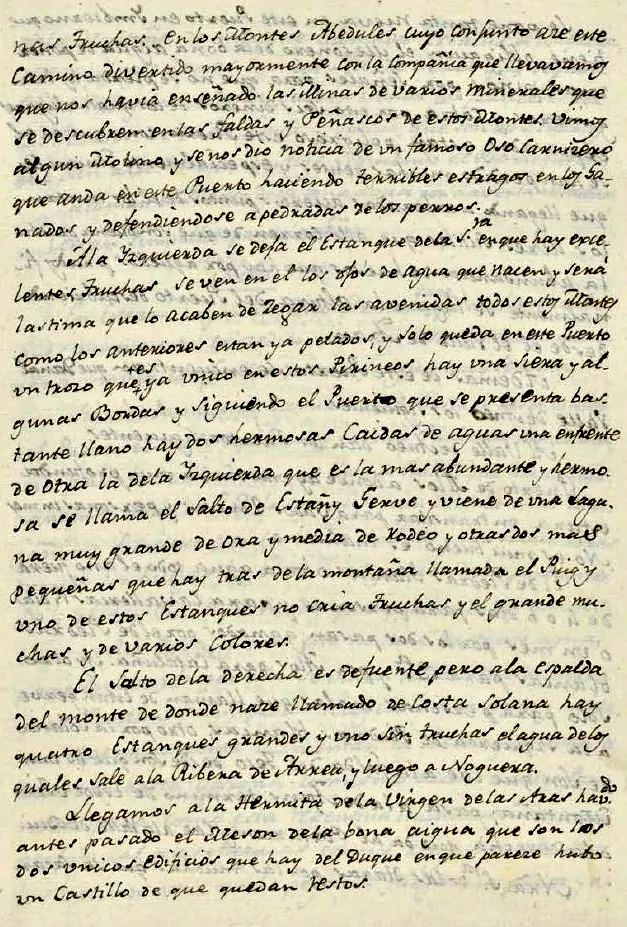 nas Truchas, en los Montes Abedules cuyo conjunto aze este
Camino divertido mayormente con la Compañia que llevavamos
que nos havia enseñado las Minas de varios Minerales que
se descubren en las faldas y Peñascos de estos Montes. Vimos
algun Molino y se nos dio noticia de vn famoso Oso Carnizero
que anda en este Puerto haciendo terribles estragos en los Ga-
nados y defendiendose a pedradas de los perros.
A la Izquierda se defa el Estanque de la S.ra en que hay exce-
lentes Truchas se ven en el los ojos de agua que nacen y será
lastima que lo acaben de zegar las avenidas todos estos Montes
como los anteriores estan ya pelados, y solo queda en este Puerto
vn trozo que es ya vnico en estos Pirineos hay vna Siera y al-
gunas Bordas y siguiendo el Puerto que se presenta bas-
tante llano hay dos hermosas Caidas de aguas vna enfrente
de otra la dela Izquierda que es la mas abundante y hermo-
sa se llama el Salto de Estañy Ferve y viene de vna Lagu-
na muy grande de Ora y media de Rodeo y otras dos mas
pequeñas que hay tras de la montaña llamada el Puig y
vno de estos Estanques no cria Truchas y el grande mu-
chas y de varios Colores.
El Salto dela derecha es defuente pero ala espalda
del monte de donde naze llamado de Costa Solana hay
quatro Estanques grandes y vno sin truchas el agua delos
quales sale ala Ribera de Arreu, y luego a Noguera.
Llegamos a la Hermita dela Virgen delas Aras hav.do
antes pasado el Meson dela bona aigua que son los
dos vnicos edificios que hay del Duque enque pareze hubo
vn Castillo de que quedan restos.